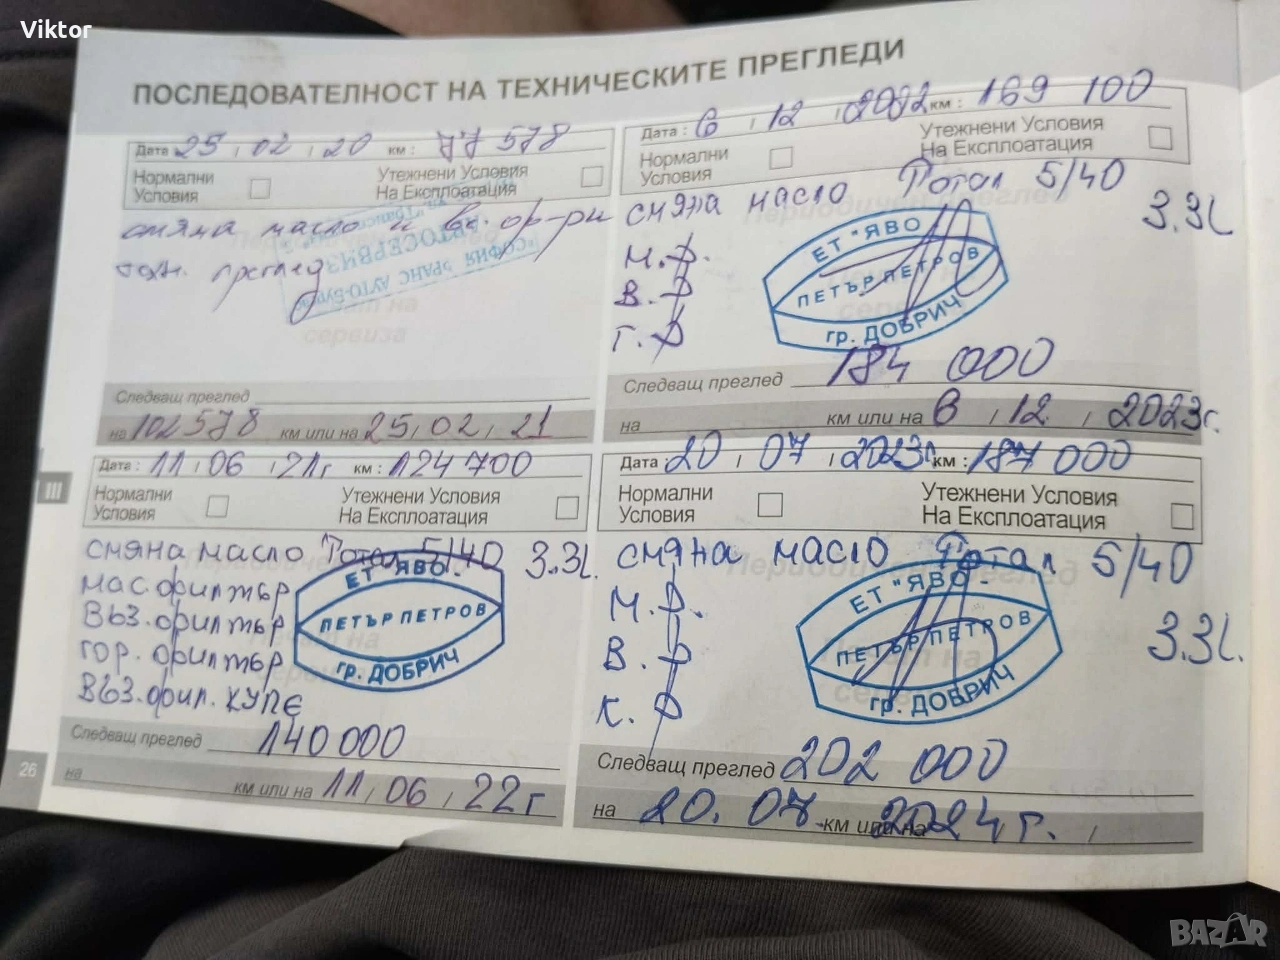 Viktor
ПОСЛЕДОВАТЕЛНОСТ НА ТЕХНИЧЕСКИТЕ ПРЕГЛЕДИ
Дата 25, 02, 20 км: 77 578
Нормални Условия
Утежнени Условия На Експлоатация
смяна масло и
техн. преглед
"СОФИЯ ФРАНС АУТО-Бургас
АВТОСЕРВИЗ
Следващ преглед
на 102578 км или на 25, 02, 21
Дата: 11, 06, 21г км: 124 700
Нормални Условия
Утежнени Условия На Експлоатация
смяна масло Тотал 5/40 3.3L.
мас. филтър
въз. филтър
гор. филтър
въз. фил. купе
ЕТ "ЯВО.
ПЕТЪР ПЕТРОВ
гр. ДОБРИЧ
Следващ преглед 140 000
на км или на 11, 06, 22г
26
III
Дата: 6, 12, 2022 км: 169 100
Нормални Условия
Утежнени Условия На Експлоатация
смяна масло Тотал 5/40
3.3L
М.Ф.
В.Ф
Г.Ф
ЕТ "ЯВО
ПЕТЪР ПЕТРОВ
гр. ДОБРИЧ
Следващ преглед 184 000
на км или на 6, 12, 2023г.
Дата: 20, 07, 2023г км: 187 000
Нормални Условия
Утежнени Условия На Експлоатация
смяна масло Тотал 5/40
3.3L.
М.Ф.
В.Ф
К.Ф
ЕТ "ЯВО
ПЕТЪР ПЕТРОВ
гр. ДОБРИЧ
Следващ преглед 202 000
на 20. 07. км или на 2024г.
BAZAR